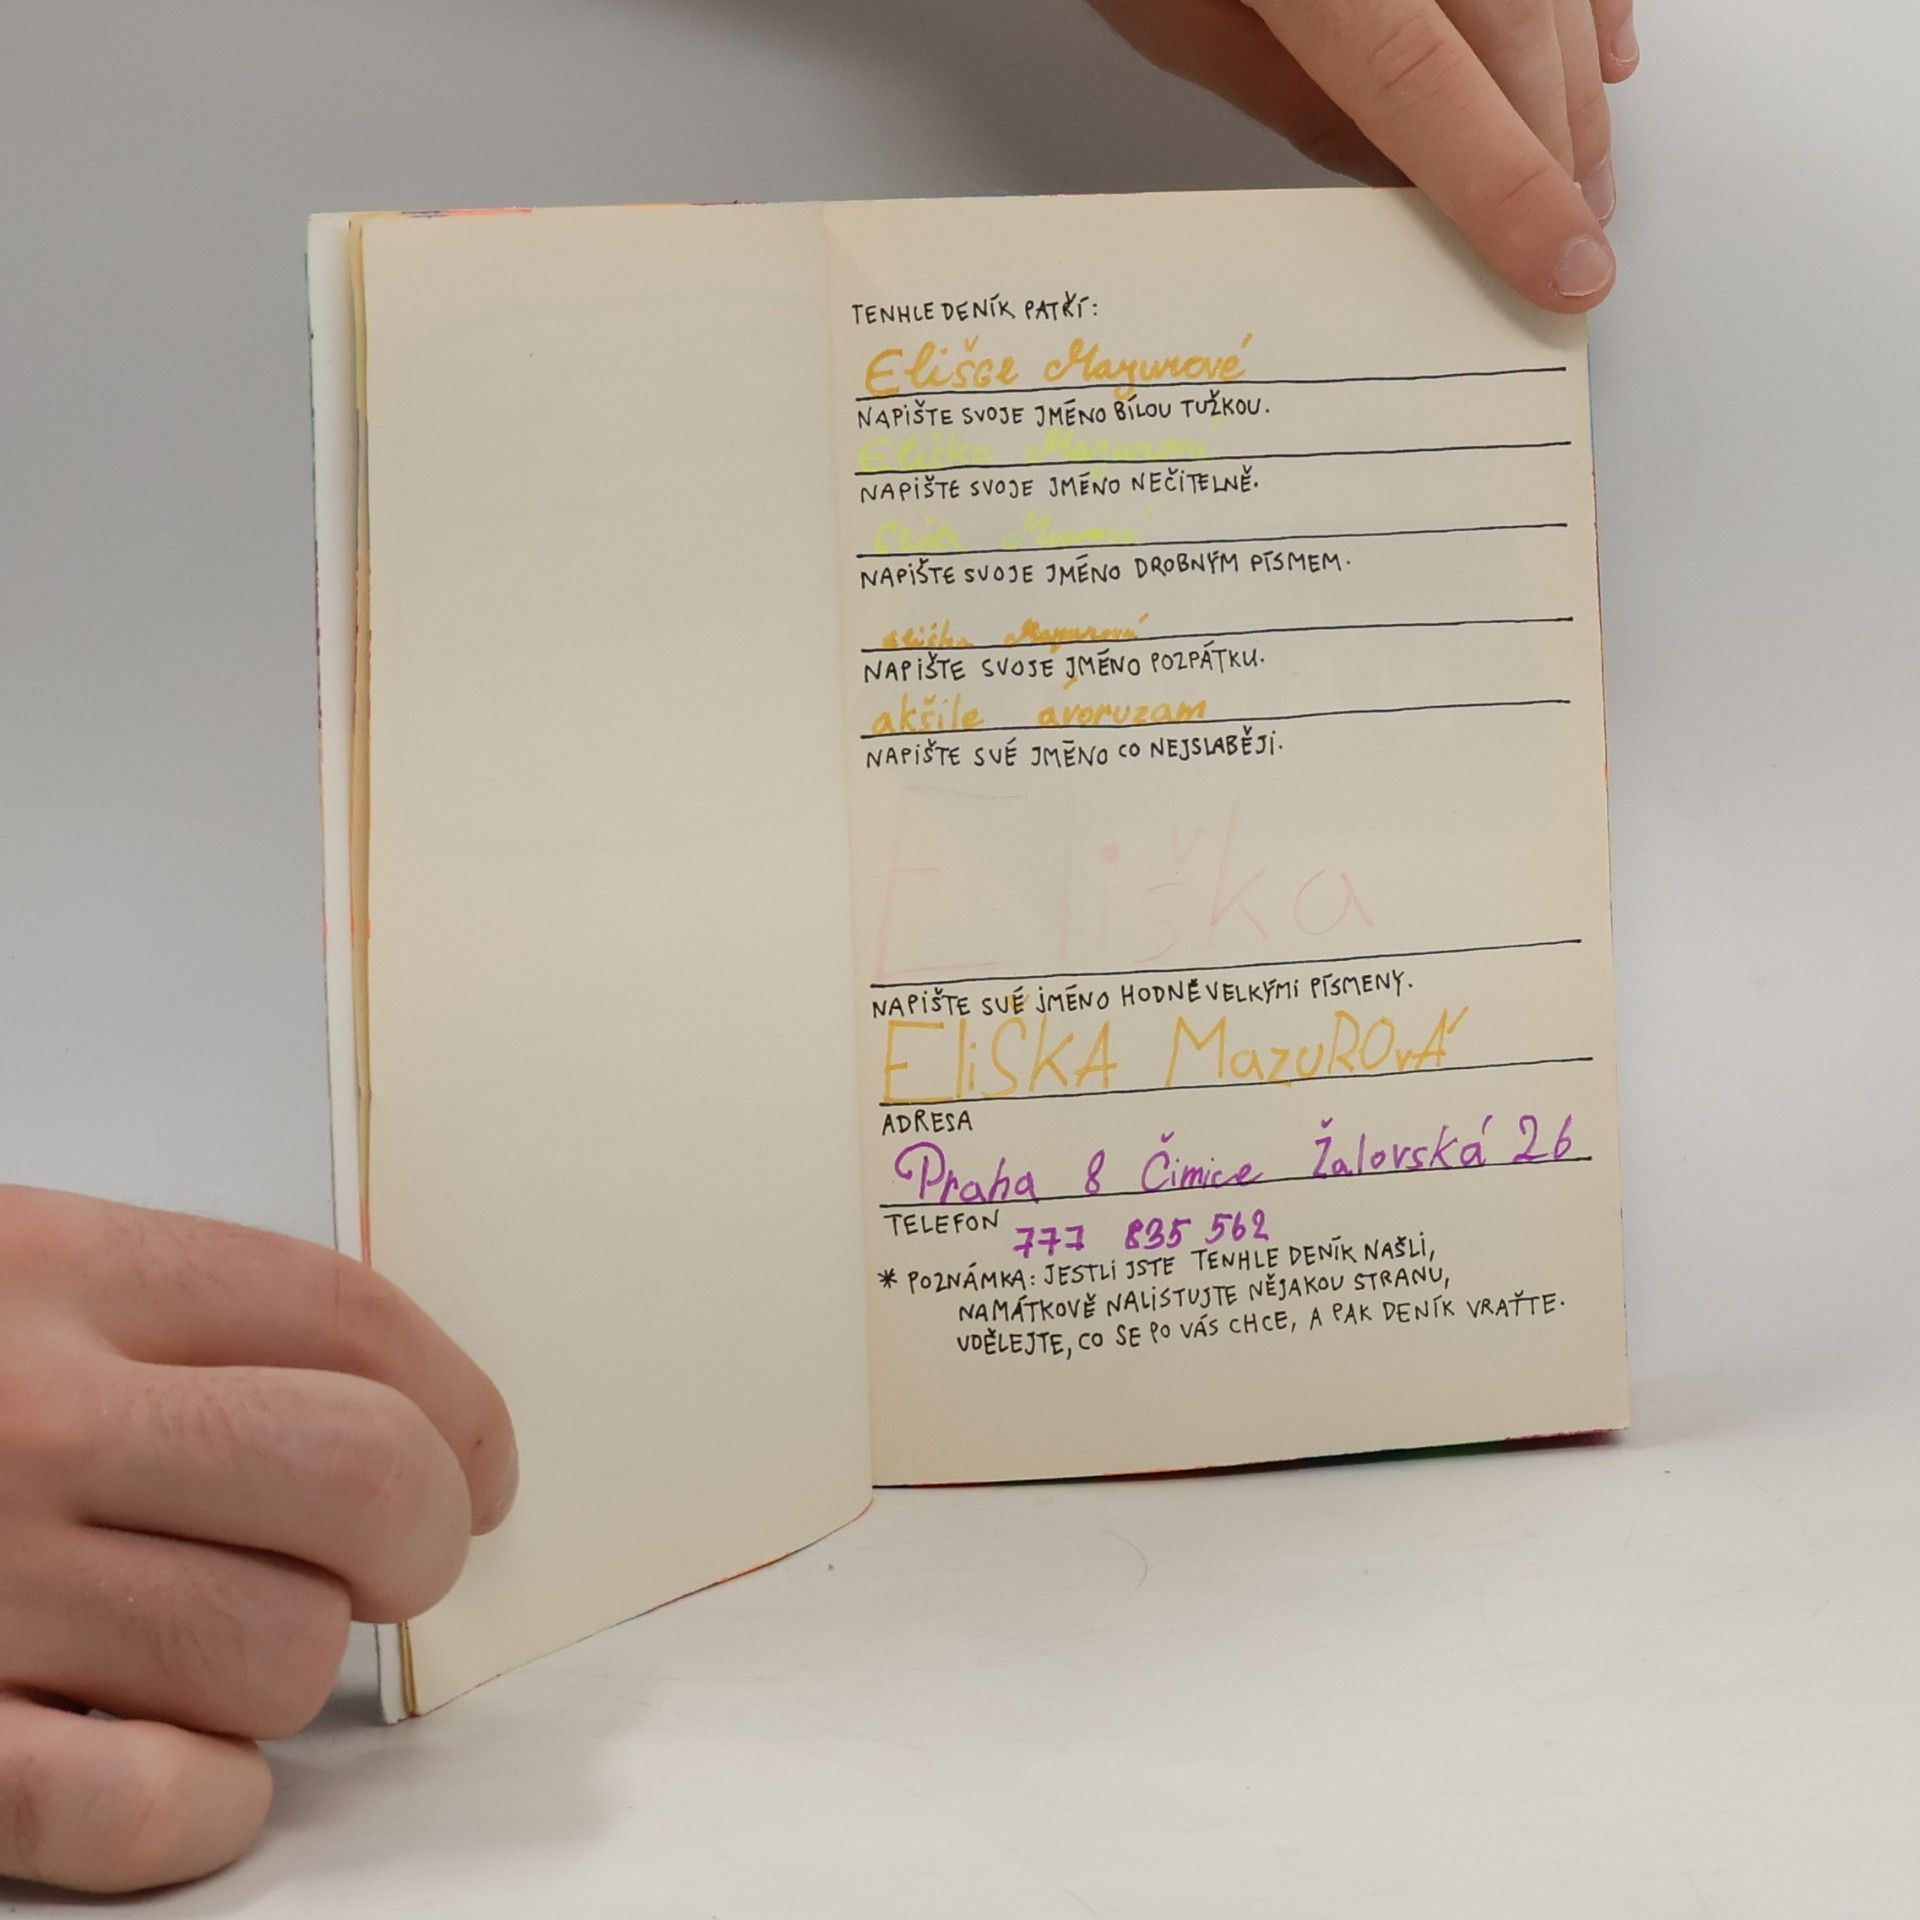 TENHLE DENÍK PATŘÍ:
Elišce Mazurové
NAPIŠTE SVOJE JMÉNO BÍLOU TUŽKOU.
Eliška Mazurová
NAPIŠTE SVOJE JMÉNO NEČITELNĚ.
NAPIŠTE SVOJE JMÉNO DROBNÝM PÍSMEM.
eliška Mazurová
NAPIŠTE SVOJE JMÉNO POZPÁTKU.
akšile ávoruzam
NAPIŠTE SVÉ JMÉNO CO NEJSLABĚJI.
Eliška
NAPIŠTE SVÉ JMÉNO HODNĚ VELKÝMI PÍSMENY.
EliŠKA MazuROvÁ
ADRESA
Praha 8 Čimice Žalovská 26
TELEFON 777 835 562
* POZNÁMKA: JESTLI JSTE TENHLE DENÍK NAŠLI,
NAMÁTKOVĚ NALISTUJTE NĚJAKOU STRANU,
UDĚLEJTE, CO SE PO VÁS CHCE, A PAK DENÍK VRAŤTE.